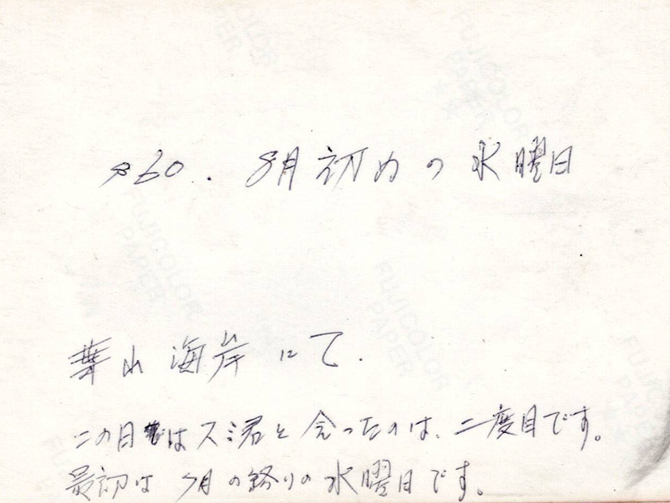 S60. 8月初めの水曜日
葉山海岸にて.
この日はスミ君と会ったのは、二度目です。
最初は7月の終りの水曜日です。
FUJICOLOR PAPER